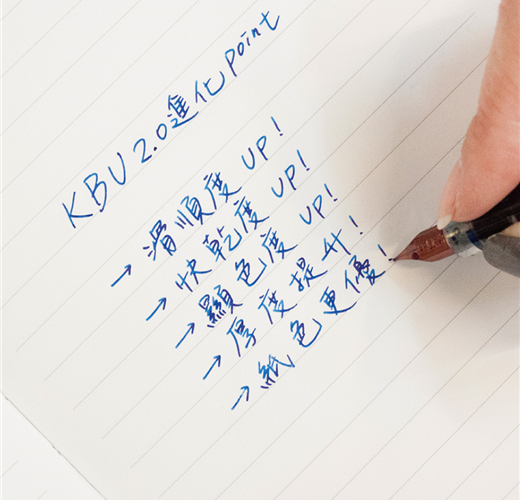 KBU 2.0進化point
→ 滑順度 UP!
→ 快乾度 UP!
→ 顯色度 UP!
→ 厚度提升!
→ 紙色更優!